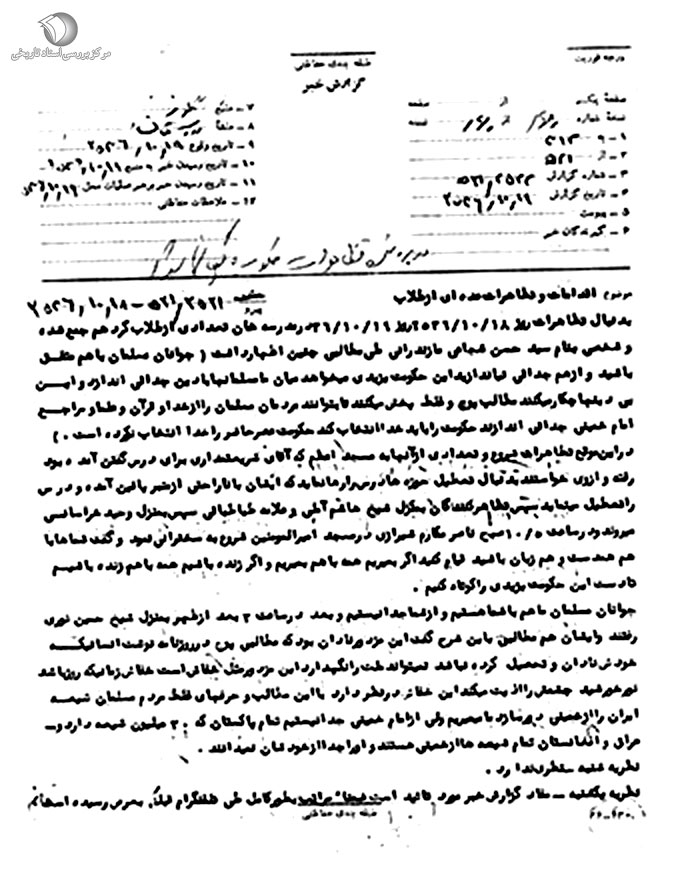 مرکز بررسی اسناد تاریخی
درجه فوریت
طبقه بندی حفاظتی
گزارش خبر
صفحه یکـ از صفحه
نسخه شماره از نسخه
۱ - به ۳۱۲
۲ - از ۵۲۱
۳ - شماره گزارش ۵۲۱/۲۵۲۲
۴ - تاریخ گزارش
۵ - پیوست
۶ - گیرندگان خبر
۷ - منبع
۸ - منشأ
۹ - تاریخ وقوع
۱۰ - تاریخ رسیدن خبر به منبع
۱۱ - تاریخ رسیدن خبر به رهبر عملیات محل
۱۲ - ملاحظات حفاظتی
موضوع اقدامات و تظاهرات عده ای از طلاب
پیرو ۵۲۱/۲۵۲۱ - ۲۵۳۶/۱۰/۱۸
بدنبال تظاهرات روز ۲۵۳۶/۱۰/۱۸ روز ۳۶/۱۰/۱۹ در مدرسه خان تعدادی از طلاب گرد هم جمع شده
و شخصی بنام سید حسن شجاعی مازندرانی طی مطالبی چنین اظهار داشت ( جوانان مسلمان با هم متفق
باشید و از هم جدائی نیاندازید این حکومت یزیدی میخواهد میان ما مسلمانها با دین جدائی اندازد و ایسن
بی دینها چکار میکنند مطالب پوچ و غلط پخش میکنند تا بتوانند مردمان مسلمان را از خدا و قرآن و علما و مراجع
امام خمینی جدائی اندازند حکومت را باید خدا انتخاب کند حکومت عصر حاضر را خدا انتخاب نکرده است . )
در این موقع تظاهرات شروع و تعدادی از آنها به مسجد اعظم که آقای شریعتمداری برای درس گفتن آمده بود
رفته و از وی خواستند بدنبال تعطیل حوزه ها درس را رها نماید که ایشان با ناراحتی از منبر پائین آمده و درس
را تعطیل مینماید سپس تظاهر کنندگان بمنزل شیخ هاشم آملی و علامه طباطبائی سپس بمنزل وحید خراسانسی
میروند در ساعت ۱۰/۵ صبح ناصر مکارم شیرازی در مسجد امیرالمومنین شروع به سخنرانی نمود و گفت شماها با
هم همدست و هم زبان باشید قیام کنید اگر بمیریم همه با هم بمیریم و اگر زنده باشیم همه با هم زنده باشیسم
تا دست این حکومت یزیدی را کوتاه کنیم .
جوانان مسلمان ما هم با شما هستیم و از شما جدا نیستیم و بعد در ساعت ۳ بعد از ظهر بمنزل شیخ حسن نوری
رفتند و ایشان هم مطالبی باین شرح گفت این مزدور نادان بود که مطالبی پوچ در روزنامه نوشت انسانیکسه
خودش نادان و تحصیل کرده نباشد نمیتواند ملت را نگهدارد این مزدور مثل خفاش است خفاش زمانیکه روز باشد
نور خورشید چشمش را اذیت میکند این خفاش در نظر دارد با این مطالب و حرفهای غلط مردم مسلمان شیعسه
ایران را از خمینی دور سازد ما میمیریم ولی از امام خمینی جدا نیستیم تمام پاکستان که ۳۰ میلیون شیعه دارد و
عراق و افغانستان تمام شیعه ها از خمینی هستند و او را جدا از خودشان نمیدانند .
نظریه شنبه نظری ندارد .
نظریه یکشنبه - مفاد گزارش خبر مورد تائید است ضمناً مراتب بطور کامل طی تلفنگرام قبلاً بعرض رسیده است
طبقه بندی حفاظتی